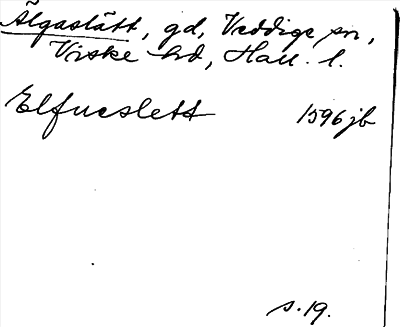 Älgastätt, gd, Veddige sn,
Viske hd, Hall. l.
Elfueslett 1596 jb
s. 19.